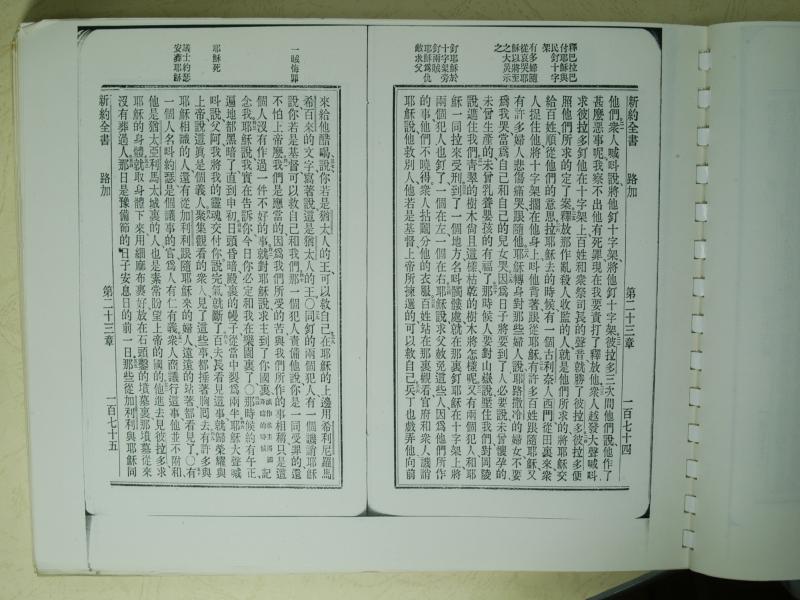 釋巴拉巴
付耶穌與
民釘十字
架
有多婦隨
從哀哭耶
穌以將至
之大災示
之
釘耶穌於
十字架旁
釘兩賊
耶穌爲仇
敵求父
新約全書 路加 第二十三章 一百七十四
他們衆人喊呌說將他釘十字架將他釘十字架彼拉多三次問他們說他作了
甚麽惡事呢我察不出他有死罪現在我要責打了釋放他衆人越發大聲喊呌
求彼拉多釘他在十字架上百姓和衆祭司長的聲音就勝了彼拉多彼拉多便
照他們所求的定了案釋放那作亂殺人收監的人就是他們所求的將耶穌交
給百姓順從他們的意思拉耶穌去的時候有一個古利奈人西門從田裏來衆
人捉住他將十字架擱在他身上呌他背著跟從耶穌有許多百姓跟隨耶穌又
有許多婦人悲傷痛哭跟隨他耶穌轉身對那些婦人說耶路撒冷的婦女不要
爲我哭當爲自己和自己的兒女哭因爲日子將要到了人必要說未曾懷孕的
未曾生產的未曾乳養嬰孩的有福了那時候人要對山嶽說壓住我們對岡陵
說遮住我們青翠的樹木尙且這樣枯乾的樹木將怎樣呢又有兩個犯人和耶
穌一同拉來受刑到了一個地方名呌髑髏處就在那裏釘耶穌在十字架上將
兩個犯人也釘了一個在左一個在右耶穌說求父赦免這些人因爲他們所作
的事他們不曉得衆人拈鬮分他的衣服百姓站在那裏觀看官府和衆人譏誚
耶穌說他救別人他若是基督上帝所揀選的可以救自己兵丁也戲弄他向前
一賊悔罪
耶穌死
議士約瑟
安葬耶穌
來給他醋喝說你若是猶太人的王可以救自己在耶穌的上邊用希利尼羅馬
希百來的文字寫著說這是猶太人的王○同釘的兩個犯人有一個譏誚耶穌
說你若是基督可以救自己和我們那一個犯人責備他說你是一同受罪的還
不怕上帝麽我們是應當的因爲我們所受的苦與我們所作的事相稱只是這
個人沒有作過一件不好的事就對耶穌說求主到了你國裏 記
念我耶穌說我實在告訴你今日你必定和我在樂園裏了○那時候約有午正
遍地都黑暗了直到申初日頭昏暗殿裏的幔子從當中裂爲兩半耶穌大聲喊
呌說父阿我將我的靈魂交付你說完氣就斷了百夫長看見這事就歸榮耀與
上帝說這眞是個義人聚集觀看的衆人見了這些事都捶著胸囘去有許多與
耶穌相識的人還有從加利利跟隨耶穌來的婦人遠遠的站著都看見了○有
一個人名呌約瑟是個議事的官爲人有仁有義衆人商議行這事他並不附和
他是猶太亞利馬太城裏的人也是素常盼望上帝的國的他進去見彼拉多求
耶穌的身體就取身體下來用細麻布裹好放在石頭鑿的墳墓裏那墳墓從來
沒有葬過人那日是豫備節的日子安息日的前一日那些從加利利與耶穌同
新約全書 路加 第二十三章 一百七十五